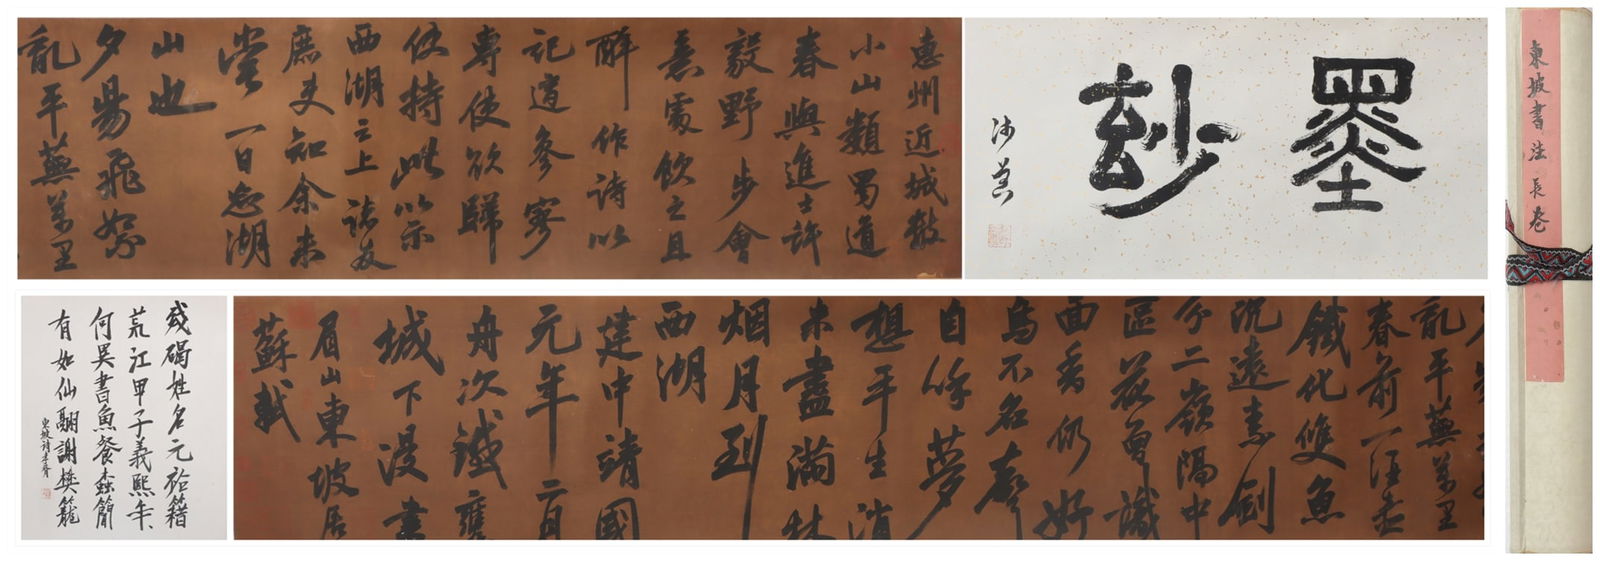 墨妙
東坡書法長卷
惠州近城數
小山類蜀道
春與進士許
毅野步會
意處飲之且
醉作詩以
記適參寥
專使欲歸
使持此以示
西湖之上諸友
庶使知余未
嘗一日忘湖
山也
夕陽飛絮
亂平蕪萬里
亂平蕪萬里
春前一酒壺
鐵化雙魚
沉遠素劍
分二嶺隔中
區花曾識
面香仍好
鳥不名聲
自呼夢
想平生消
未盡滿林
烟月到
西湖
建中靖國
元年二月
舟次鐵甕
城下漫書
眉山東坡居
蘇軾
殘碣姓名元祐籍
荒江甲子義熙年
何異書魚餐蠹簡
有如仙翮謝樊籠